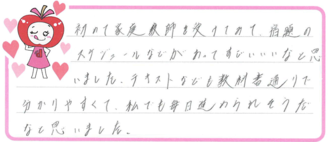 初めて家庭教師を受けてみて、宿題の
スケジュールなどがあってすごいいいなと思
いました。テキストなども教科書通りで
分かりやすくて、私でも毎日進められそうだ
なと思いました。